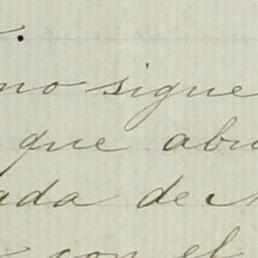 no sigue
que abu
ada de
con el